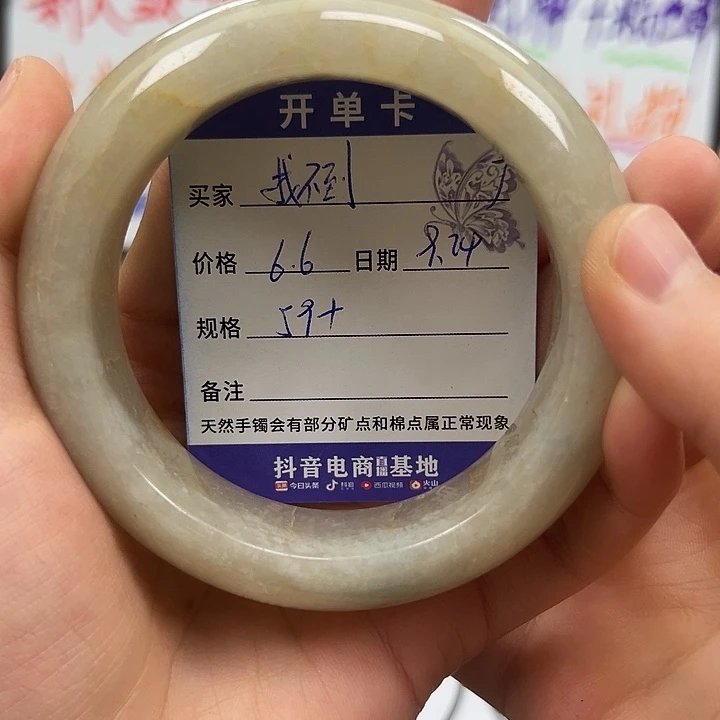 开单卡
买家 找不到
价格 6.6 日期 8.24
规格 59+
备注
天然手镯会有部分矿点和棉点属正常现象
抖音电商直播基地
头条 今日头条 抖音 西瓜视频 火山